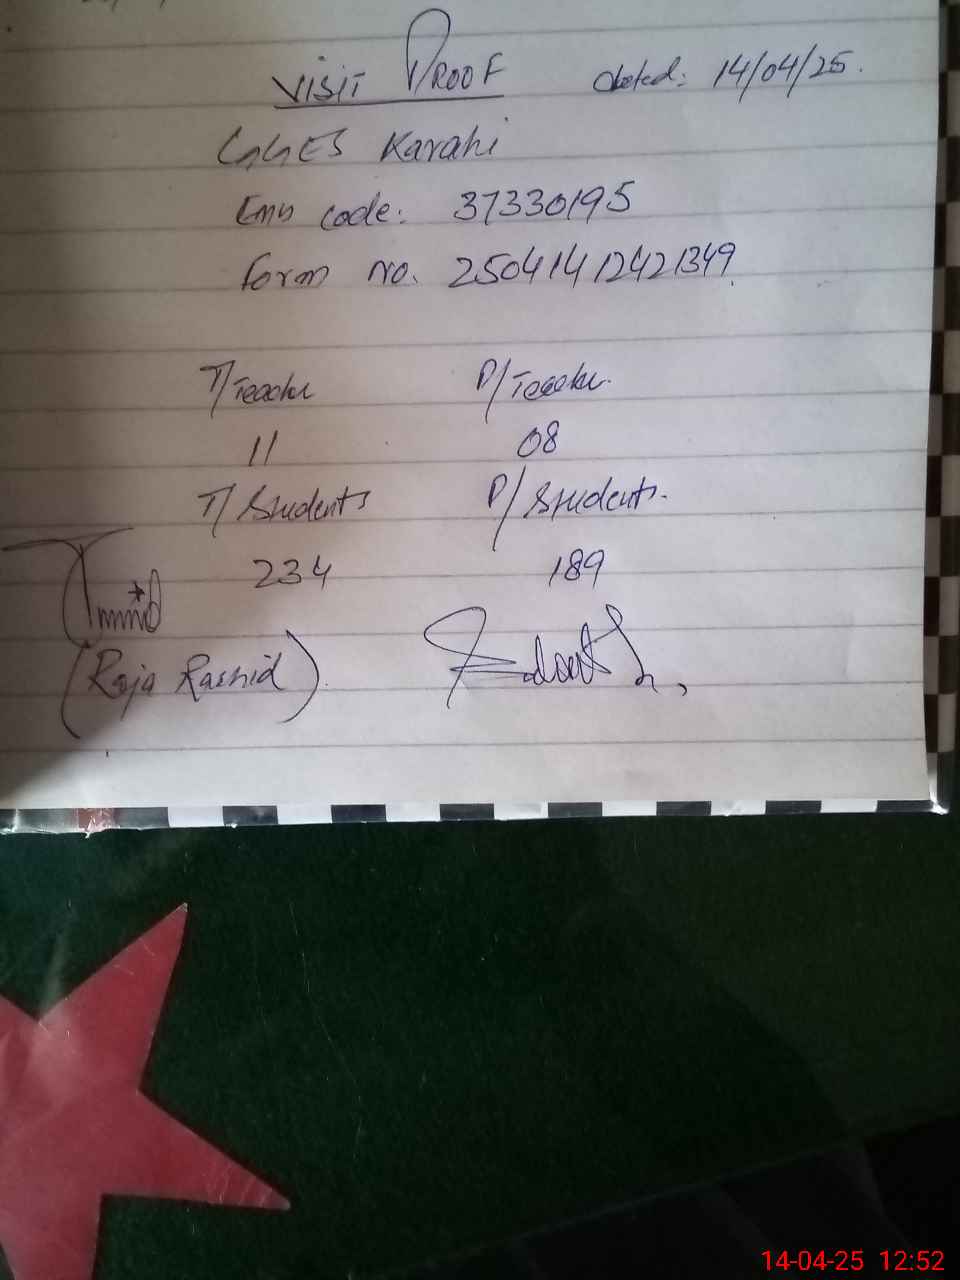 VISIT PROOF dated: 14/04/25.
GGES Karahi
Emis code: 37330195
Form no. 25041412421349.
T/Teacher P/Teacher.
11 08
T/Students P/Students.
234 189
(Raja Rashid)
14-04-25 12:52